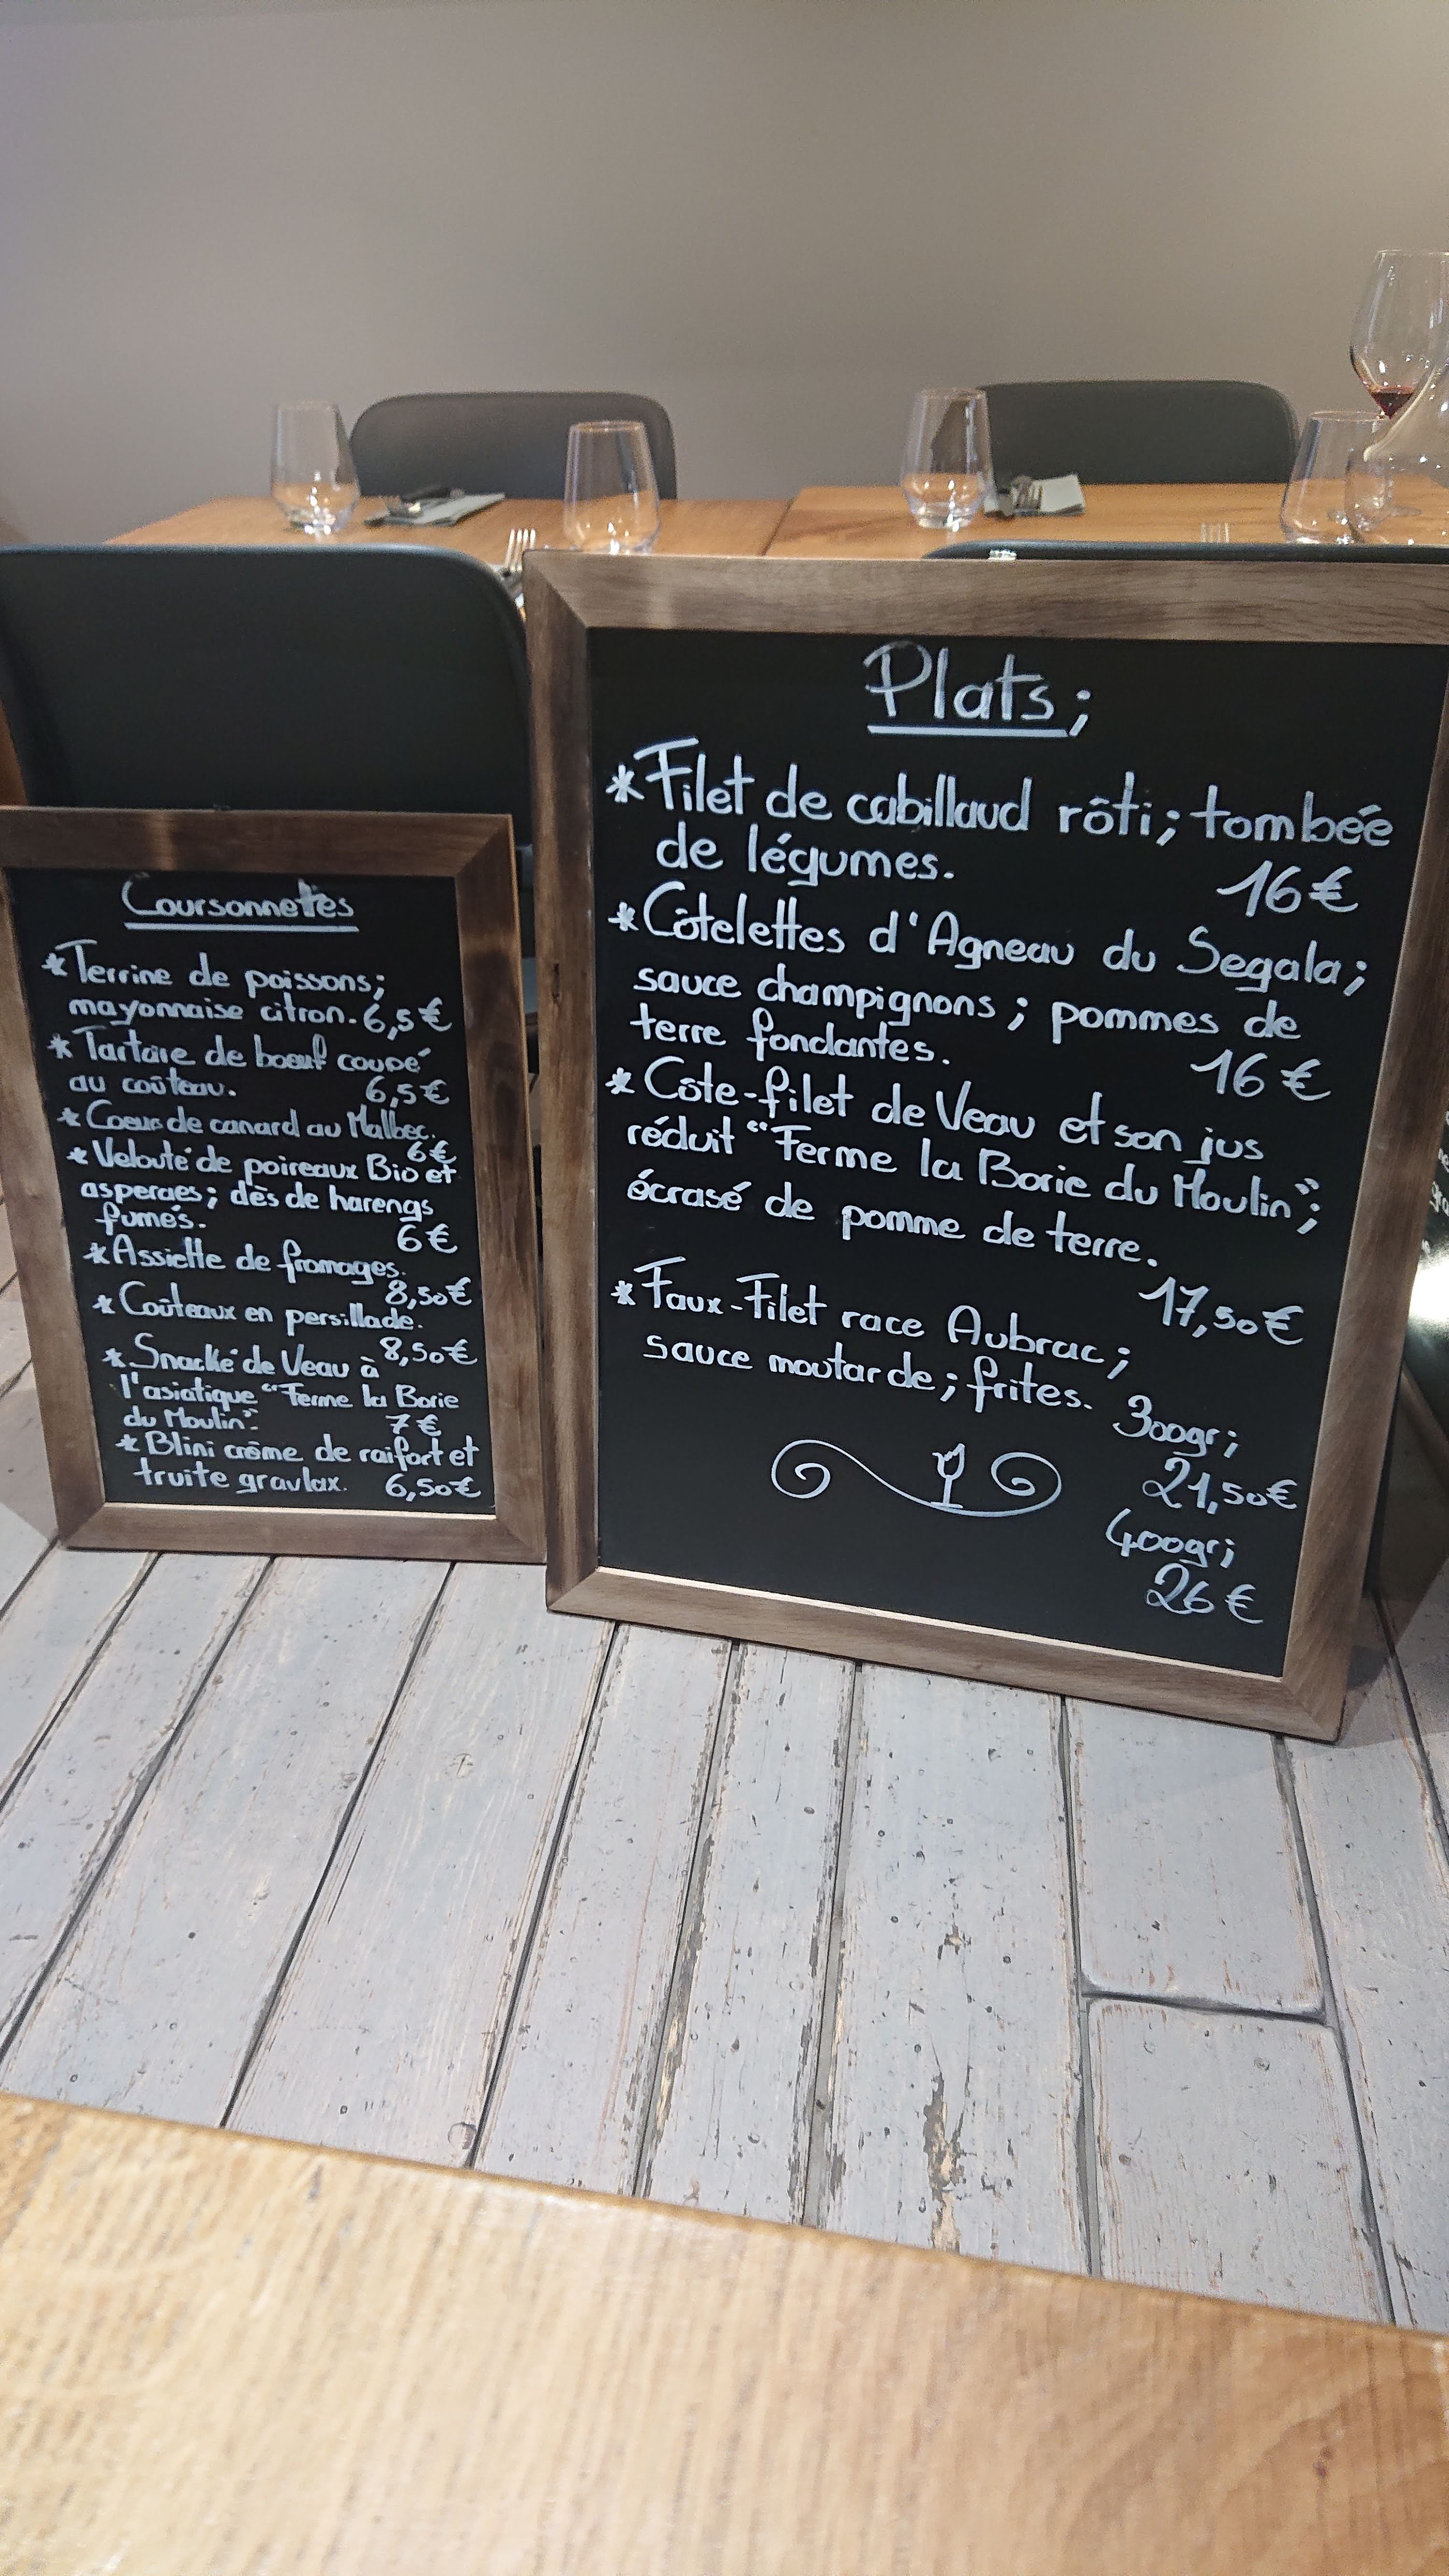 Coursonnettes
*Terrine de poissons;
mayonnaise citron. 6,5€
*Tartare de boeuf coupé
au coûteau. 6,5€
*Coeur de canard au Malbec.
6€
*Velouté de poireaux Bio et
asperges; dès de harengs
fumés. 6€
*Assiette de fromages.
8,50€
*Coûteaux en persillade.
8,50€
*Snacké de Veau à
l'asiatique "Ferme la Borie
du Moulin". 7€
*Blini crème de raifort et
truite gravlax. 6,50€
Plats;
*Filet de cabillaud rôti; tombée
de légumes. 16€
*Côtelettes d'Agneau du Segala;
sauce champignons; pommes de
terre fondantes. 16€
*Côte-filet de Veau et son jus
réduit "Ferme la Borie du Moulin";
écrasé de pomme de terre.
17,50€
*Faux-Filet race Aubrac;
sauce moutarde; frites.
300gr;
21,50€
400gr;
26€